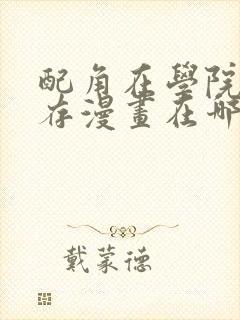 配角在學院
存漫畫在哪
戴蒙德